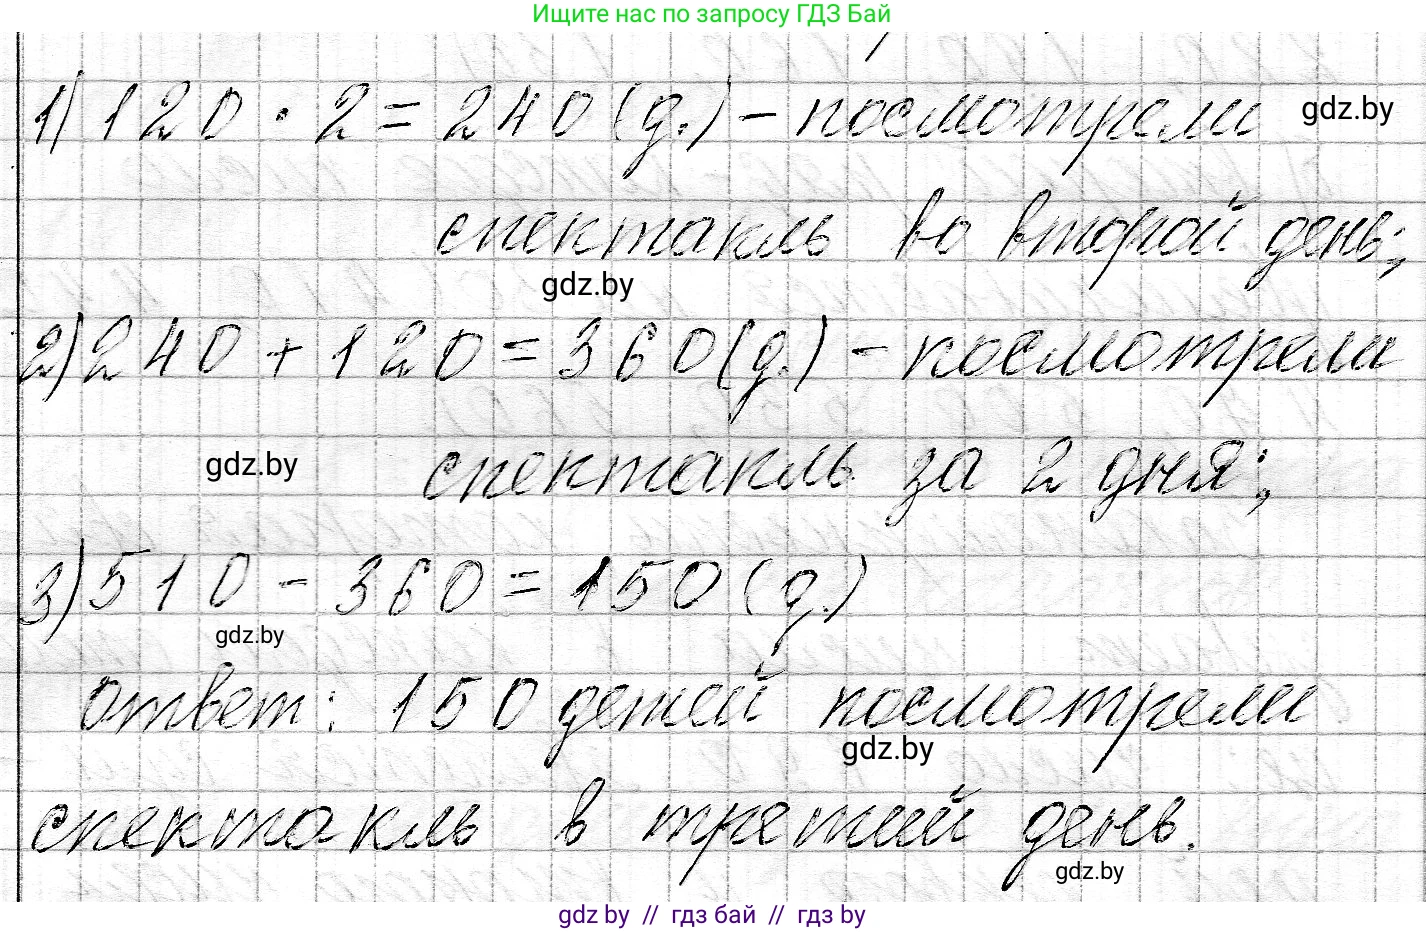 Ищите нас по запросу ГДЗ Бай
1) 120 · 2 = 240 (д.) – посмотрели
gdz.by
спектакль во второй день;
gdz.by
2) 240 + 120 = 360 (д.) – посмотрели
gdz.by
спектакль за 2 дня;
3) 510 - 360 = 150 (д.)
gdz.by
ответ: 150 детей посмотрели
gdz.by
спектакль в третий день.
gdz.by
gdz by // гдз бай // гдз by